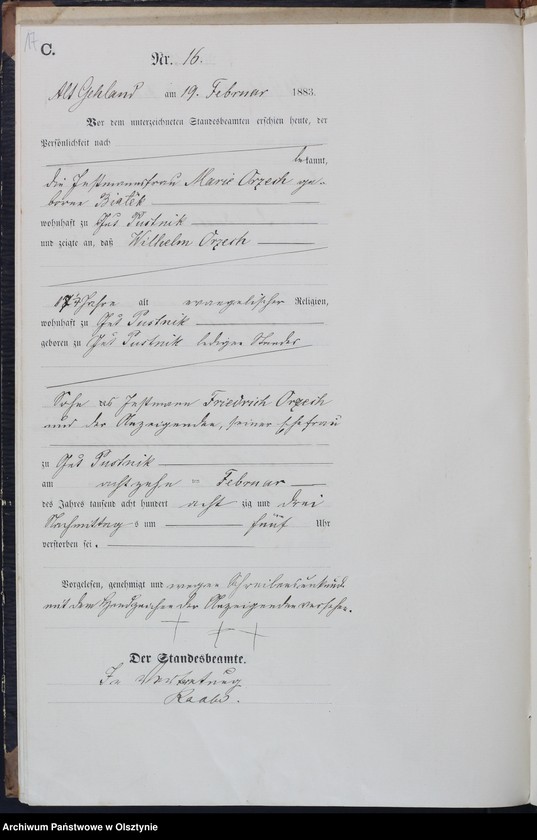 17
C.
Nr. 16.
Alt Gehland am 19. Februar 1883.
Vor dem unterzeichneten Standesbeamten erschien heute, der
Persönlichkeit nach
bekannt,
die Instmannsfrau Marie Orzech ge-
borne
wohnhaft zu Gut Pustnik
und zeigte an, daß Wilhelm Orzech
Jahre alt evangelischer Religion,
wohnhaft zu Gut Pustnik
geboren zu Gut Pustnik ledigen Standes
Sohn des Instmann Friedrich Orzech
und der Anzeigenden, seiner Ehefrau
zu Gut Pustnik
am achtzehn ten Februar
des Jahres tausend acht hundert acht zig und drei
Nachmittag s um fünf Uhr
verstorben sei.
Vorgelesen, genehmigt und wegen Schreibensunkunde
mit dem Handzeichen der Anzeigenden versehen.
+++
Der Standesbeamte.
In Vertretung
Archiwum Państwowe w Olsztynie